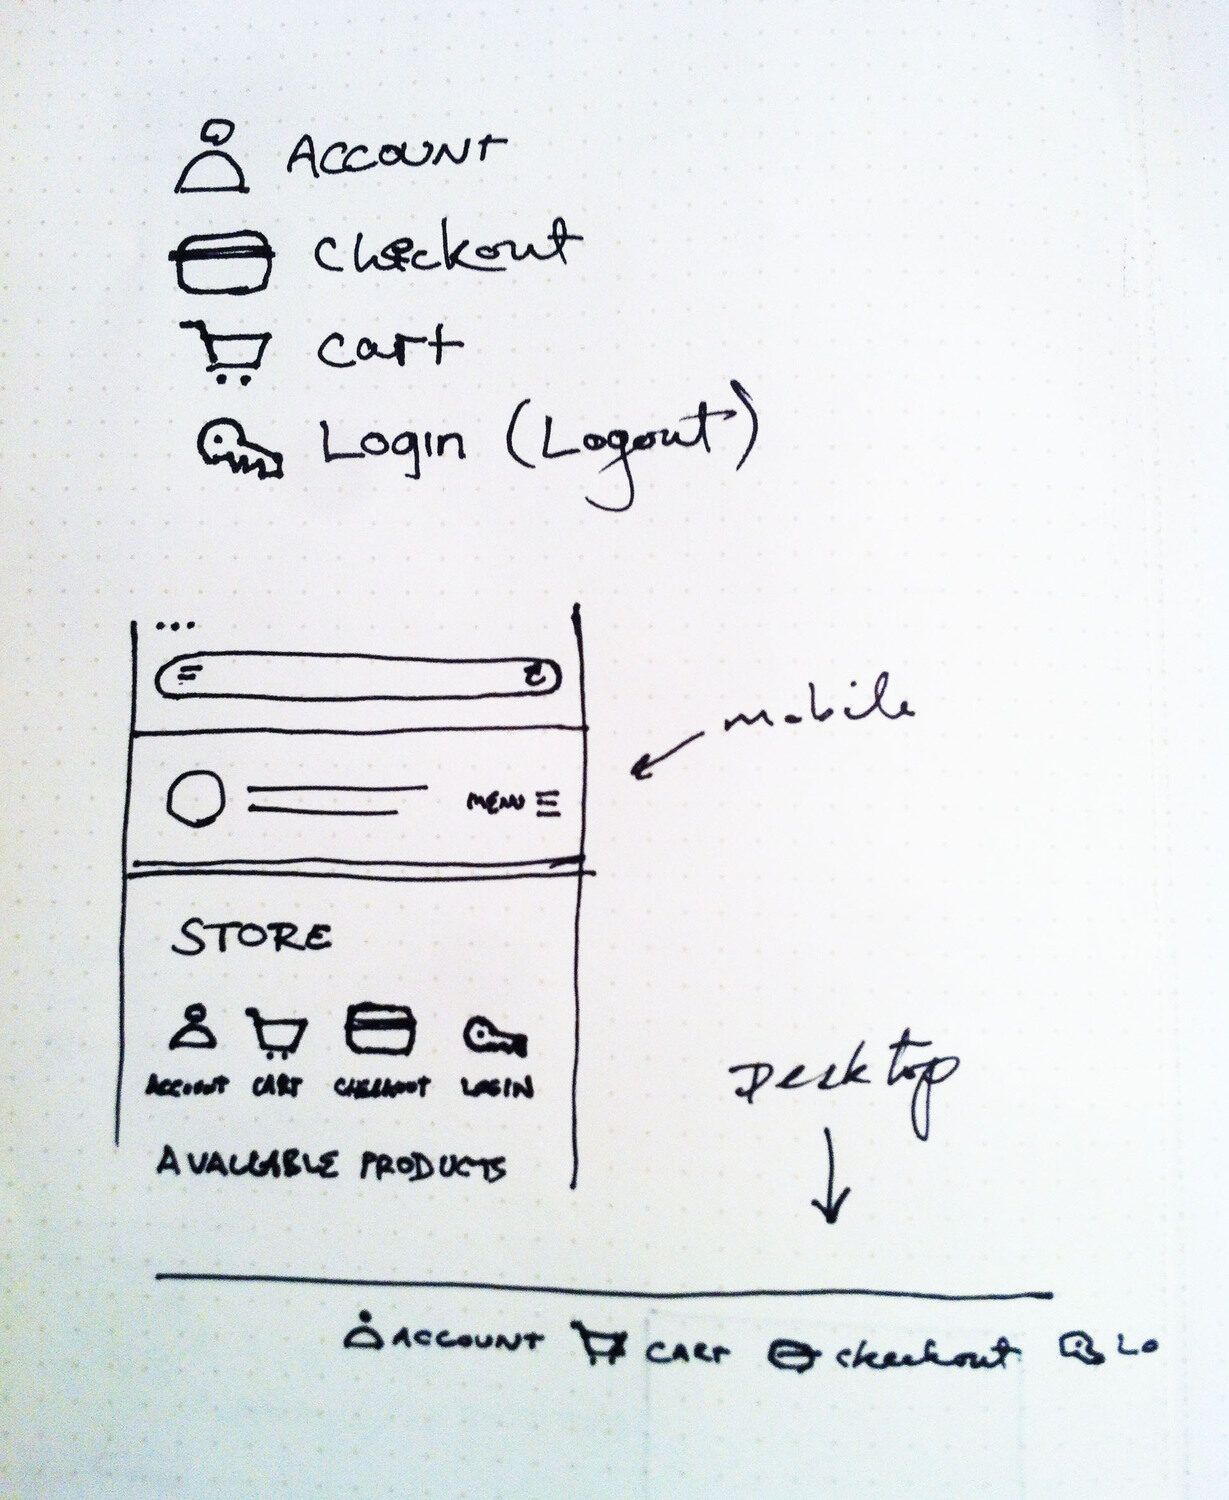 ACCOUNT
Checkout
Cart
Login (Logout)
mobile
MENU
STORE
ACCOUNT CART CHECKOUT LOGIN
AVAILABLE PRODUCTS
Desktop
ACCOUNT CART Checkout LO